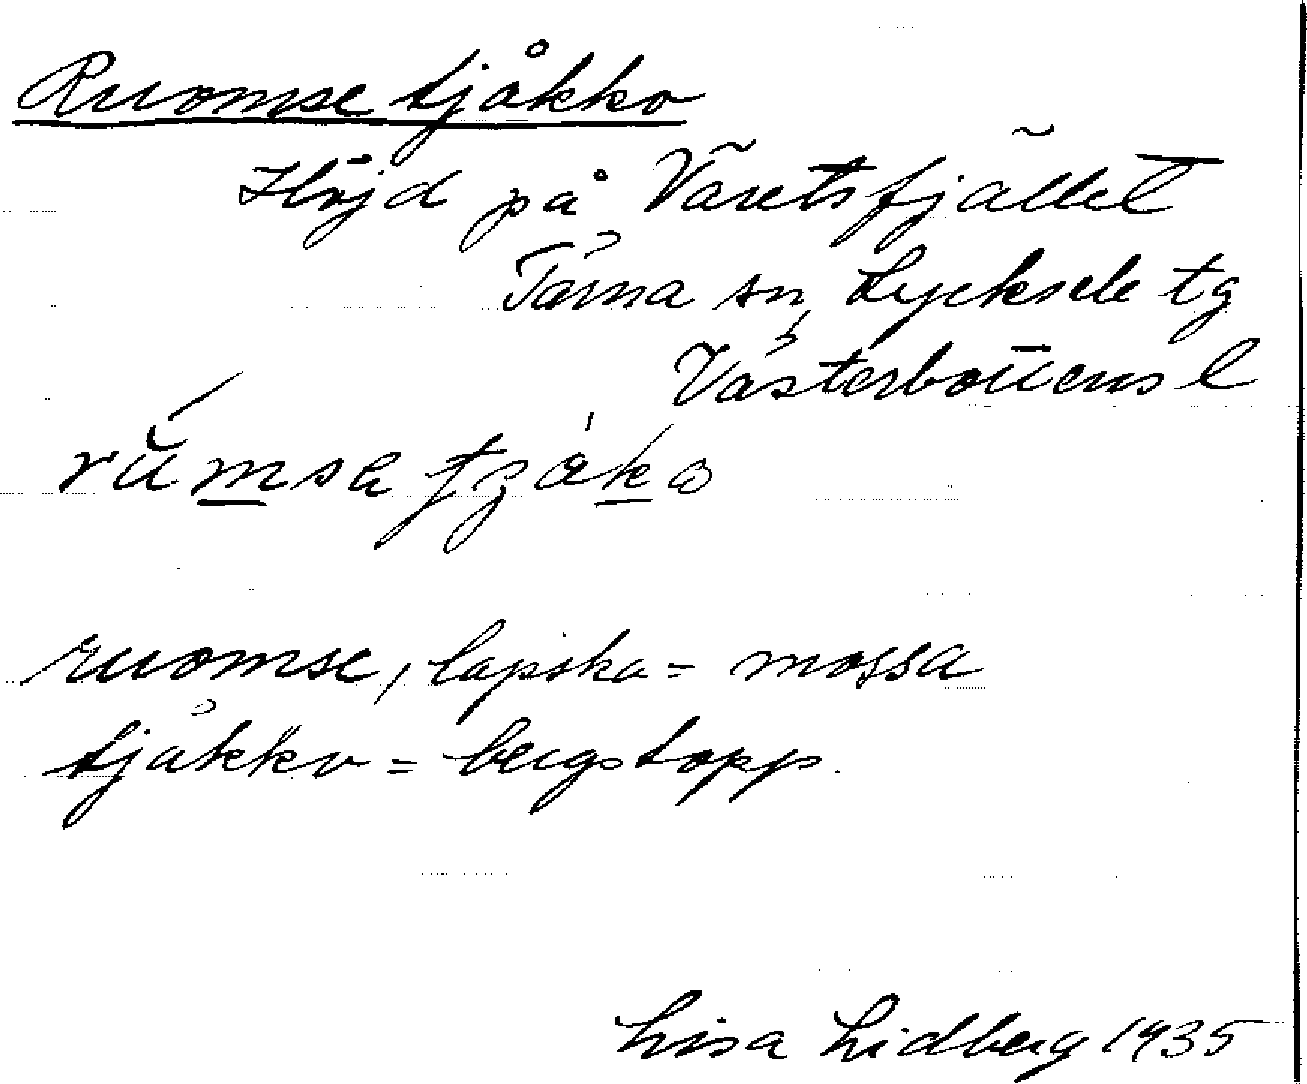 Ruomse tjåkko
Höjd på Väretsfjället
Tärna sn, Lycksele tg
Västerbottens l
ruomse, lapska = mossa
tjåkko = bergstopp.
Lisa Lidberg 1935